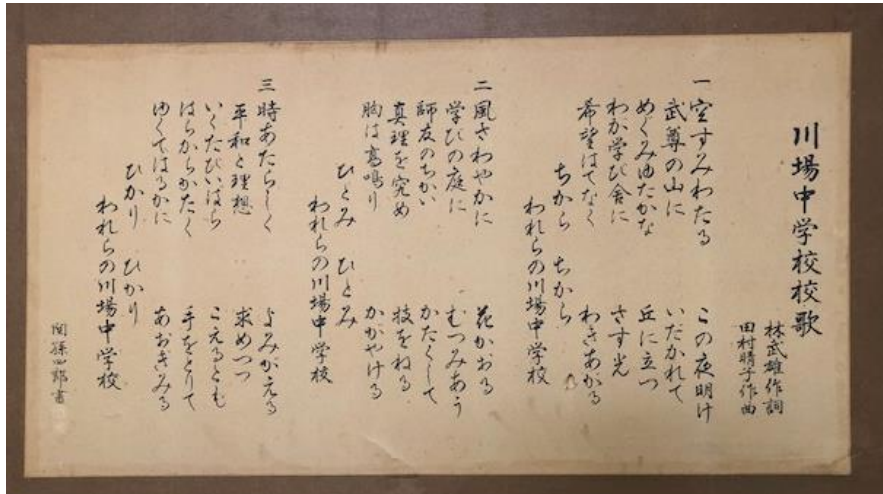 川場中学校校歌
林武雄作詞
田村晴子作曲
一 空すみわたる この夜明け
武尊の山に いだかれて
めぐみゆたかな 丘に立つ
わが学び舎に さす光
希望はてなく わきあがる
ちから ちから
われらの川場中学校
二 風さわやかに 花かおる
学びの庭に むつみあう
師友のちかい かたくして
真理を究め 技をねる
胸は高鳴り かがやける
ひとみ ひとみ
われらの川場中学校
三 時あたらしく よみがえる
平和と理想 求めつつ
いくたびいばら こえるとも
はらからかたく 手をとりて
ゆくてはるかに あおぎみる
ひかり ひかり
われらの川場中学校
関孫四郎書